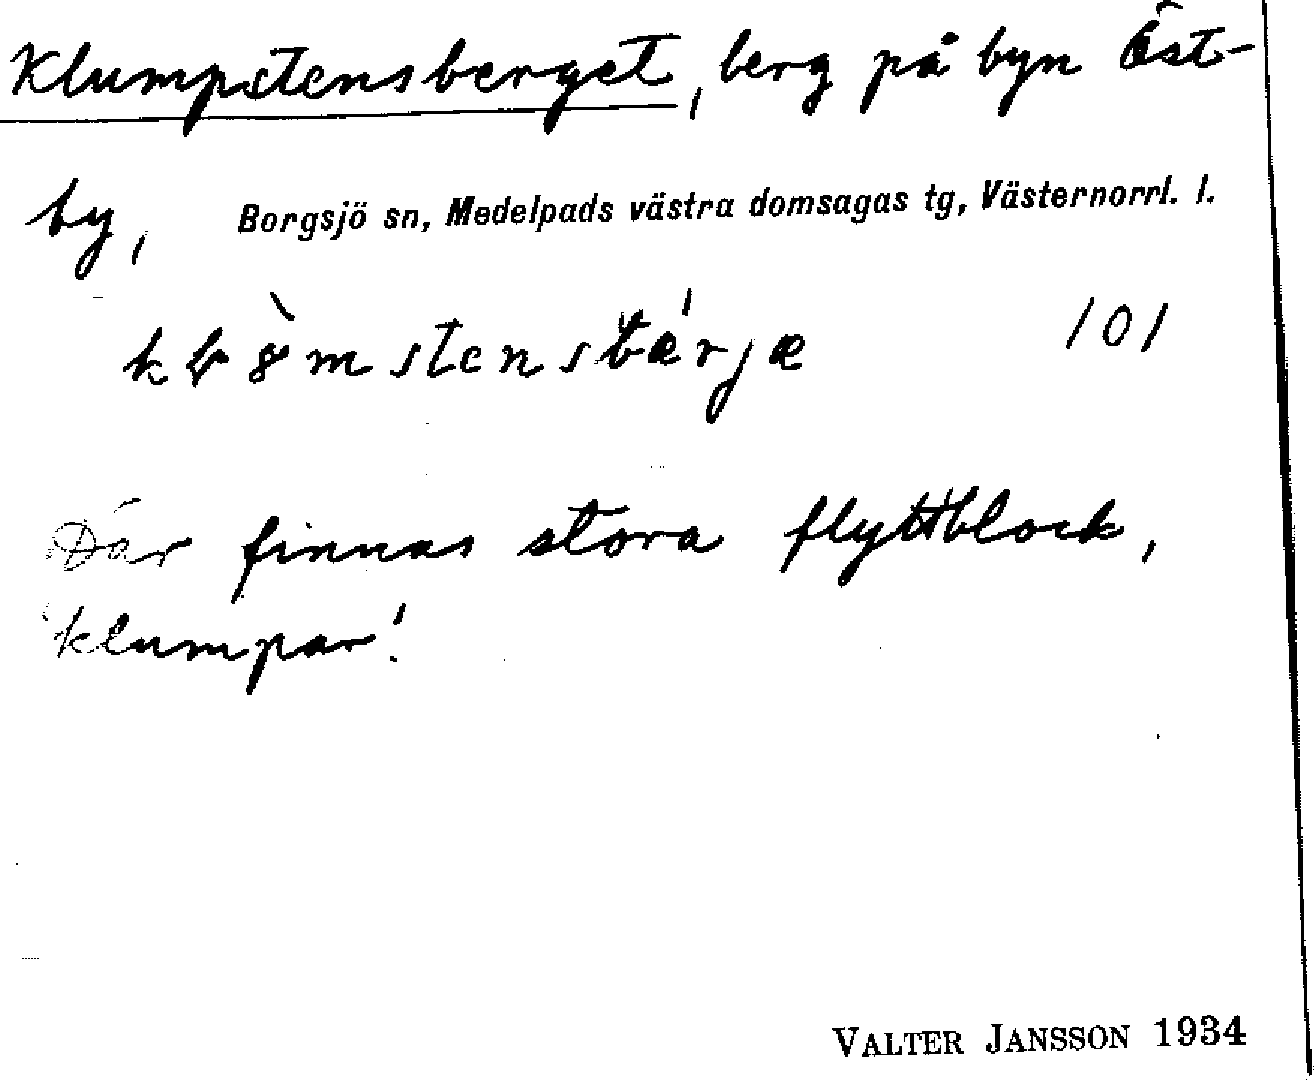 Klumpstensberget, berg på byn Öst-
by, Borgsjö sn, Medelpads västra domsagas tg, Västernorrl. l.
101
Där finnas stora flyttblock,
'klumpar'.
VALTER JANSSON 1934